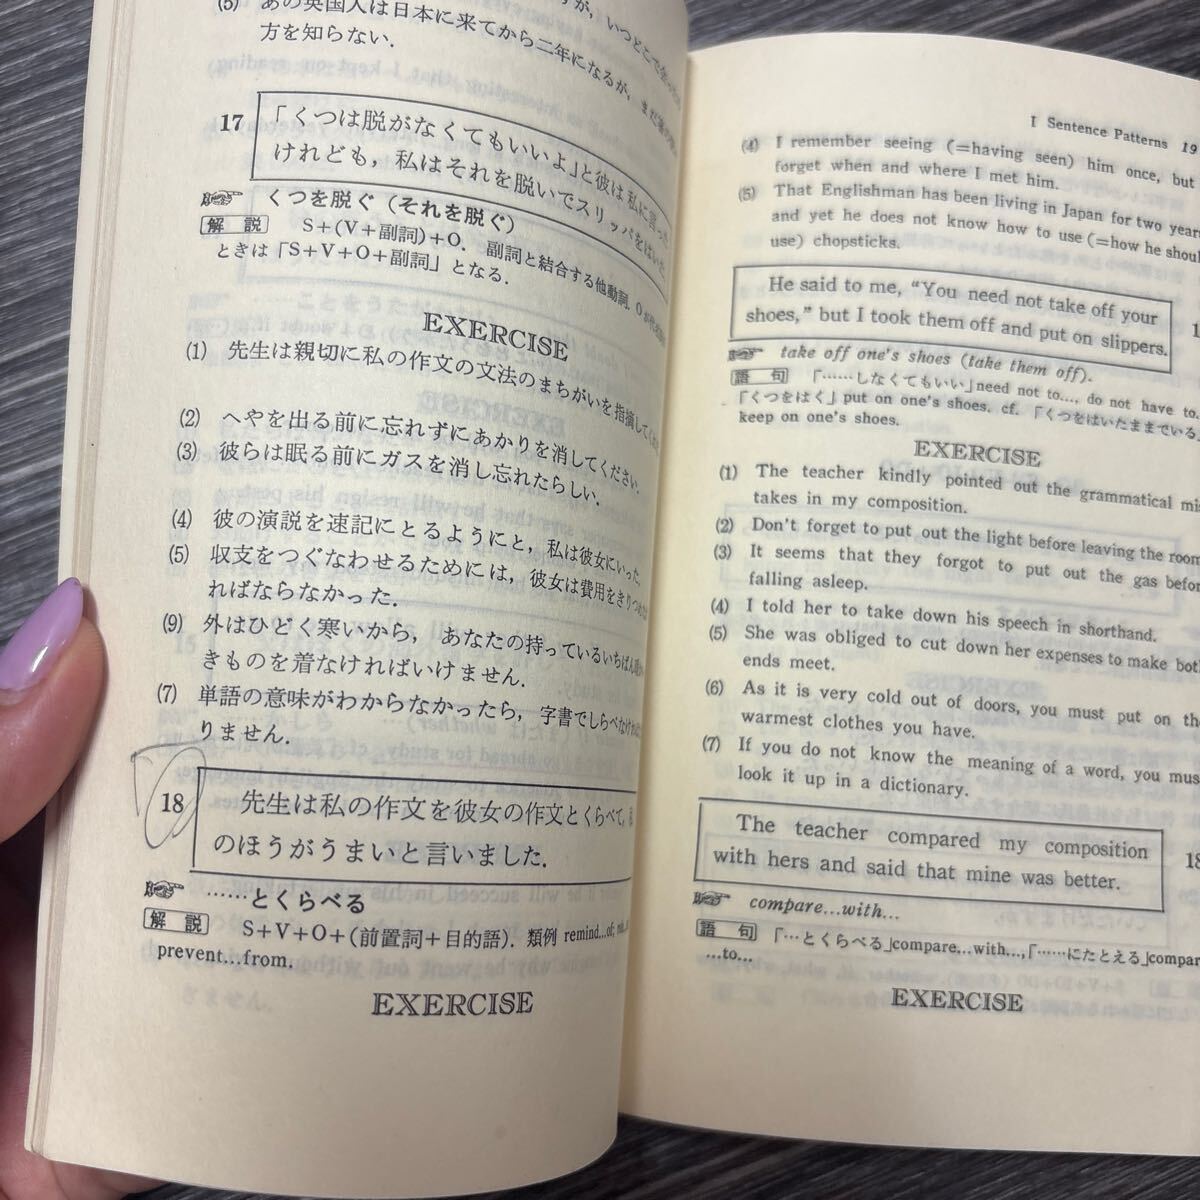 (5) あの英国人は日本に来てから二年になるが，まだ
方を知らない．
17 「くつは脱がなくてもいいよ」と彼は私に言った
けれども，私はそれを脱いでスリッパをはいた．
☞ くつを脱ぐ（それを脱ぐ）
解説 S+(V+副詞)+O． 副詞と結合する他動詞．O
ときは「S+V+O+副詞」となる．
EXERCISE
(1) 先生は親切に私の作文の文法のまちがいを指摘して
(2) へやを出る前に忘れずにあかりを消してください．
(3) 彼らは眠る前にガスを消し忘れたらしい．
(4) 彼の演説を速記にとるようにと，私は彼女にいった．
(5) 収支をつぐなわせるためには，彼女は費用をきりつめ
ればならなかった．
(9) 外はひどく寒いから， あなたの持っているいちばん
きものを着なければいけません．
(7) 単語の意味がわからなかったら，字書でしらべなければ
りません．
18 先生は私の作文を彼女の作文とくらべて，
のほうがうまいと言いました．
☞ ……とくらべる
解説 S+V+O+(前置詞+目的語)．類例 remind…of;
prevent…from.
EXERCISE
I Sentence Patterns 19
(4) I remember seeing (=having seen) him once, but
forget when and where I met him.
(5) That Englishman has been living in Japan for two years
and yet he does not know how to use (=how he shou
use) chopsticks.
He said to me, “You need not take off your
shoes,” but I took them off and put on slippers.
☞ take off one's shoes (take them off).
語句 「……しなくてもいい」need not to…, do not have to,
「くつをはく」put on one's shoes. cf. 「くつをはいたままでいる」
keep on one's shoes.
EXERCISE
(1) The teacher kindly pointed out the grammatical mis
takes in my composition.
(2) Don't forget to put out the light before leaving the room
(3) It seems that they forgot to put out the gas befor
falling asleep.
(4) I told her to take down his speech in shorthand.
(5) She was obliged to cut down her expenses to make both
ends meet.
(6) As it is very cold out of doors, you must put on the
warmest clothes you have.
(7) If you do not know the meaning of a word, you mus
look it up in a dictionary.
The teacher compared my composition
with hers and said that mine was better.
18
☞ compare…with…
語句 「…とくらべる」compare…with…,「……にたとえる」compar
…to…
EXERCISE